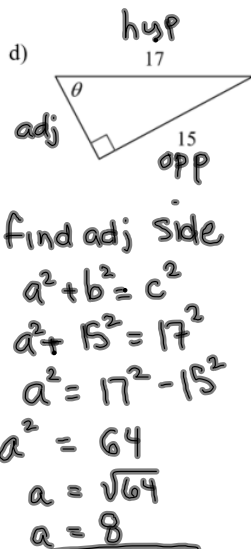 hyp
d)
17
θ
adj
15
opp
find adj side
a² + b² = c²
a² + 15² = 17²
a² = 17² - 15²
a² = 64
a = √64
a = 8